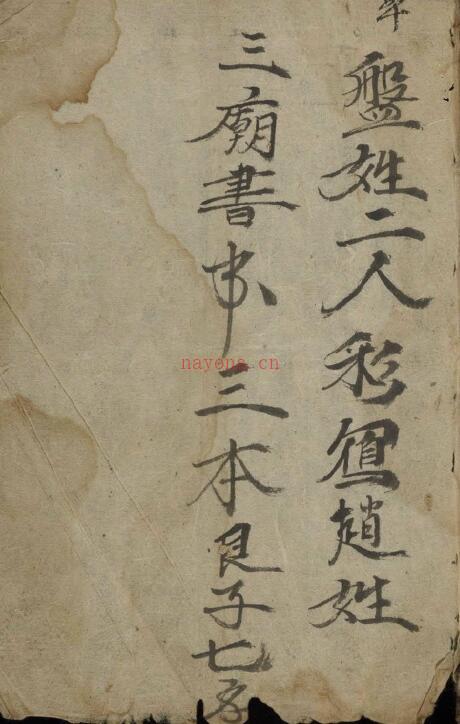 年
盤姓二人彩趙姓
三廟書三本良子七
nayona.cn